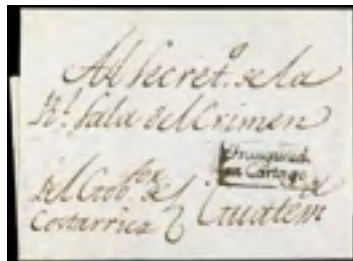 Al Secret.º de la
R.l Sala del Crimen
Franqueado
en Cartago
Del Gob.or de
Costarrica
Guatem